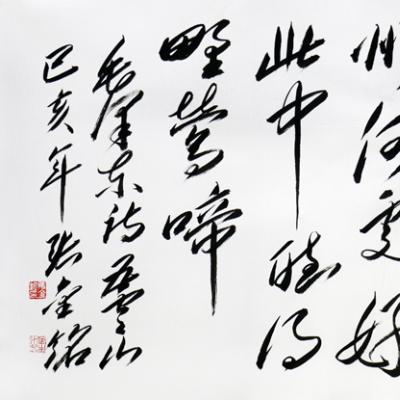 州何处好
此中听得
野莺啼
毛泽东诗五云山
己亥年张金铭